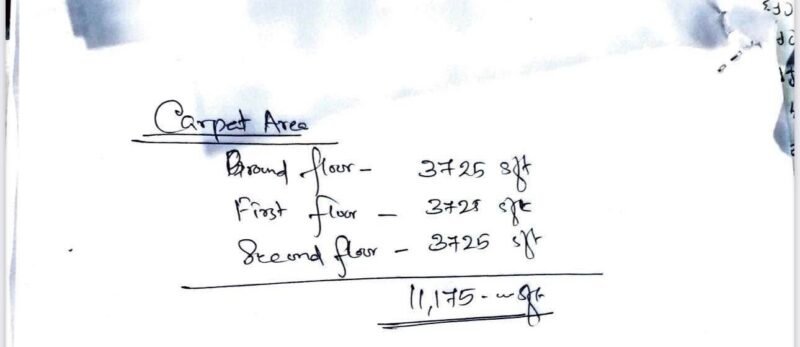 Carpet Area
Ground floor - 3725 sft
First floor - 3725 sft
Second floor - 3725 sft
11,175-00 sft